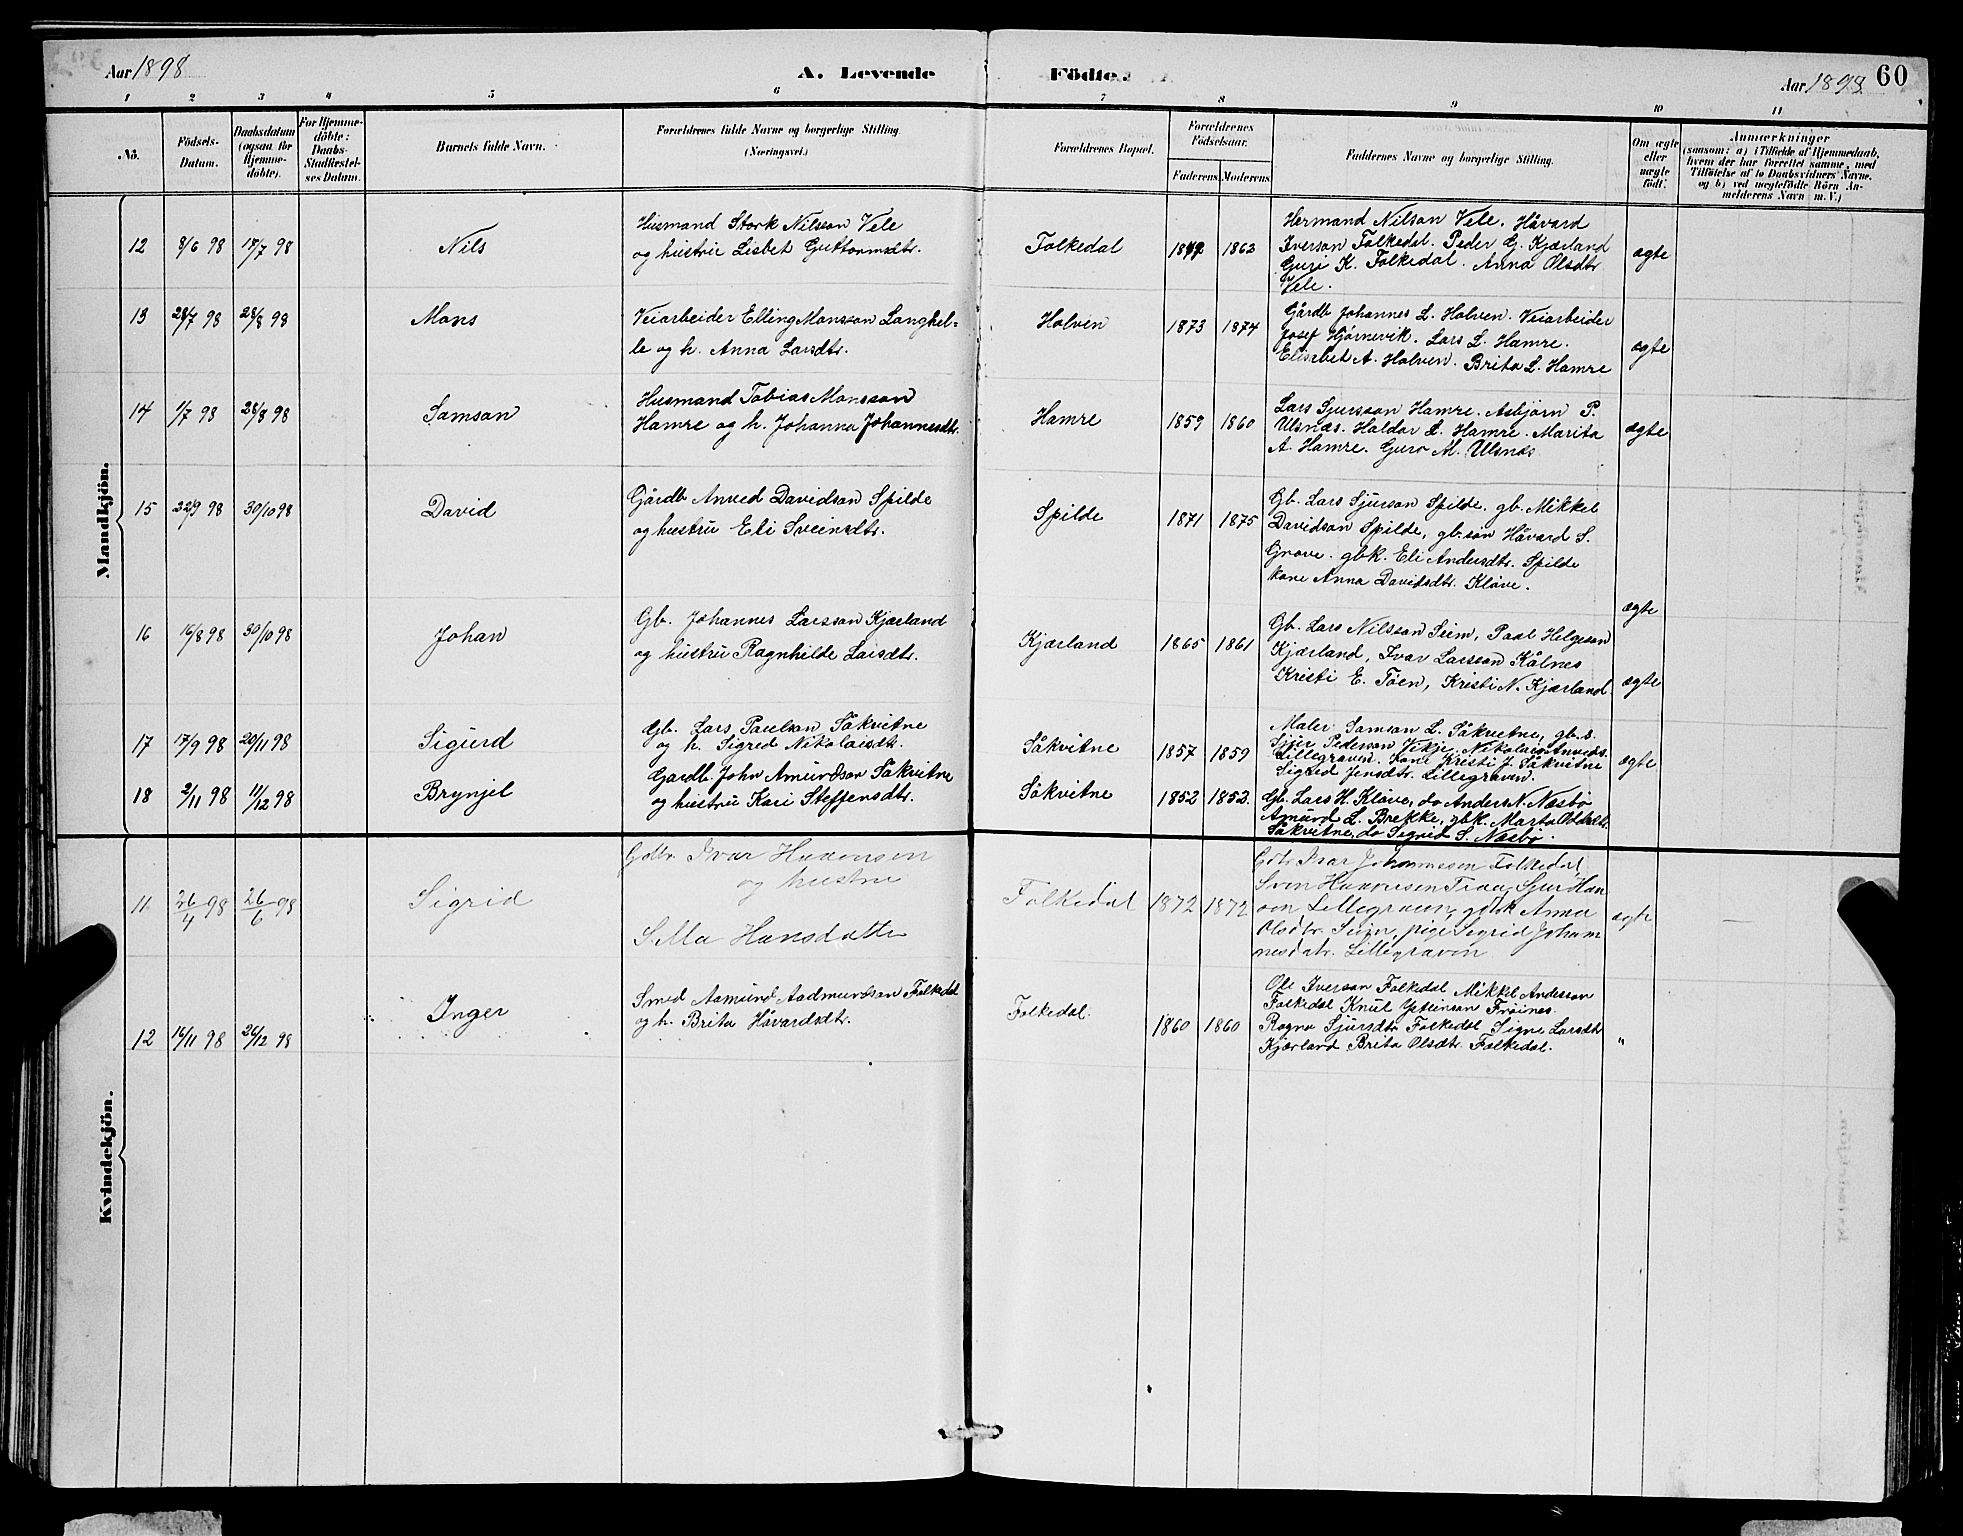 Aar 1898 A. Levende Födte. Aar 1898 60
1 2 3 4 5 6 7 8 9 10 11
No.
Födsels-
Datum.
Daabsdatum
(ogsaa for
Hjemme-
döbte).
For Hjemme-
döbte:
Daabs-
Stadfæstel-
ses Datum.
Barnets fulde Navn.
Forældrenes fulde Navne og borgerlige Stilling.
(Næringsvei.)
Forældrenes Bopæl.
Forældrenes
Födselsaar.
Faderens Moderens
Faddernes Navne og borgerlige Stilling.
Om ægte
eller
uægte
födt.
Anmærkninger
(saasom: a) i Tilfælde af Hjemmedaab,
hvem der har forrettet samme, med
Tilföielse af to Daabsvidners Navne,
og b) ved uægtefödte Börn An-
melderens Navn m. V.)
Mandkjön.
12 8/6 98 17/7 98 Nils
Husmand Stork Nilsson Vele
og hustru Lisbet Guttormsdtr.
Folkedal 1863
Hermand Nilson Vele. Håvard
Iverson Folkedal. Peder G. Kjærland
Guri K. Folkedal. Anna Olsdtr
Vele.
ægte
13 28/7 98 28/8 98 Mons
Veiarbeider Elling Monsson Langhel-
le og h. Anna Larsdtr.
Holven 1873 1874
Gårdb Johannes L. Holven. Veiarbeider
Josef Hjørnevik. Lars L. Hamre.
Elisabet A. Holven. Brita L. Hamre
ægte
14 1/7 98 28/8 98 Samson
Husmand Tobias Monsson
Hamre og h. Johanna Johannesdtr.
Hamre 1859 1860
Lars Sjursson Hamre. Asbjørn P.
Ulsnæs. Haldor L. Hamre. Marita
A. Hamre. Guro M. Ulsnæs
ægte
15 22/9 98 30/10 98 David
Gårdb Anved Davidson Spilde
og hustru Eli Sveinsdtr.
Spilde 1871 1875
Gb. Lars Sjurson Spilde. gb. Mikkel
Davidson Spilde, gb. søn Håvard S.
Grove. gbk. Eli Andersdtr. Spilde
kone Anna Davidsdtr. Kløve.
ægte
16 16/8 98 30/10 98 Johan
Gb. Johannes Larsson Kjærland
og hustru Ragnhilde Larsdtr.
Kjærland 1865 1861
Gb. Lars Nilsson Seim, Paal Helgeson
Kjærland, Ivar Larsson Kålnes
Kristi E. Tøen, Kristi N. Kjærland.
ægte
17 17/9 98 20/11 98 Sigurd
Gb. Lars Paulson Såkvitne
og h. Sigred Nikolaisdt.
Såkvitne 1857 1859
Maler Samson L. Såkvitne, gb. s.
Sjur Pederson Vikje. Nikolai Anveds.
Lillegraven. Kone Kristi J. Såkvitne
Sigrid Jensdtr. Lillegraven.
ægte
18 2/11 98 11/12 98 Brynjel
Gardb. John Amundson Såkvitne
og hustru Kari Steffensdtr.
Såkvitne 1852 1852.
Gb. Lars H. Kløve, do Anders N. Næsbø
Amund L. Brekke, gbk. Marta Oddsdtr.
Såkvitne, do Sigrid S. Næsbø.
Kvindekjön.
11. 26/4 98 26/6 98 Sigrid
Gdbr. Ivar Haavensen
og hustru
Silla Hansdatter
Folkedal 1872 1872
Gdbr Ivar Johannessen Folkedal,
Sven Haavensen Sjur Han
sen, Lillegraven, gdbk Anna
Olsdtr. Seim, pige Sigrid Johan
nesdatr. Lillegraven
ægte —
12 16/11 98 26/12 98 Inger
Smed Aamund Aadmundson Folkedal
og h. Brita Håvardsdtr.
Folkedal. 1860 1860
Ole Iverson Folkedal Mikkel Anderson
Folkedal Knut Frøines.
Ragna Sjursdtr Folkedal Signe Larsdtr
Kjærland Brita Olsdtr. Folkedal.
"